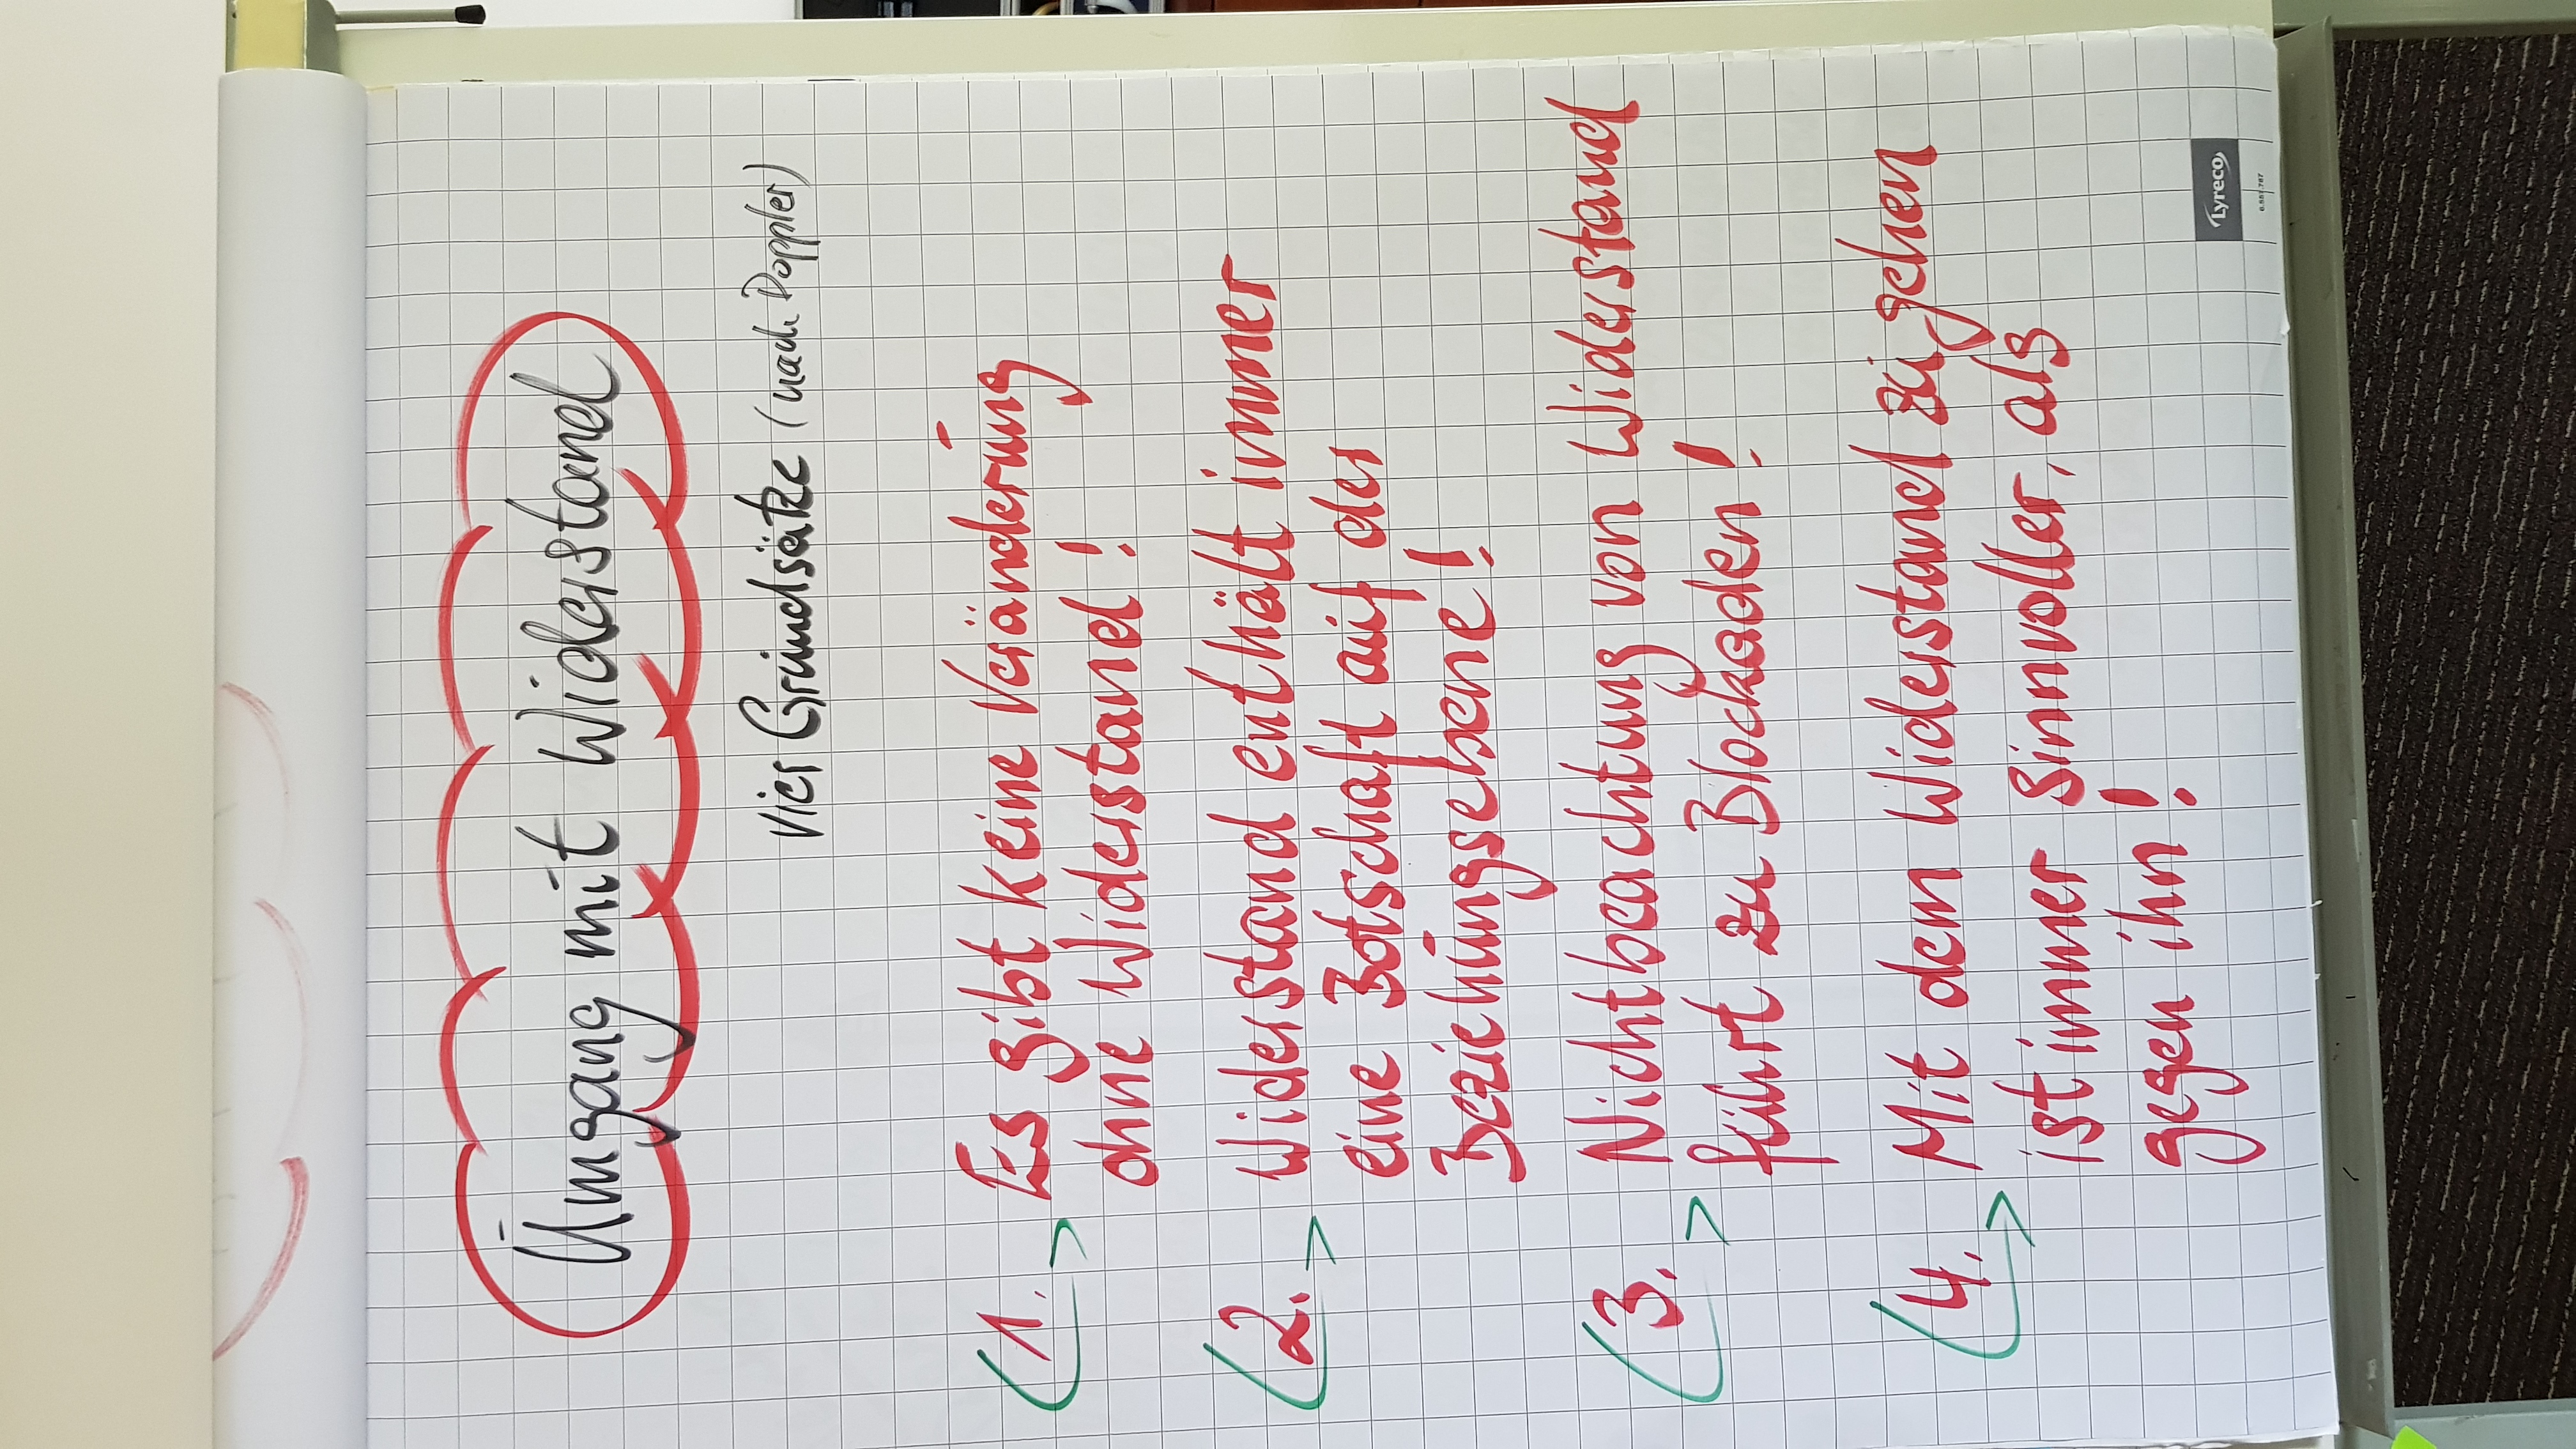 Umgang mit Widerstand
Vier Grundsätze (nach Doppler)
1. Es gibt keine Veränderung
ohne Widerstand!
2. Widerstand enthält immer
eine Botschaft auf der
Beziehungsebene!
3. Nichtbeachtung von Widerstand
führt zu Blockaden!
4. Mit dem Widerstand zu gehen
ist immer sinnvoller, als
gegen ihn!
Lyreco
6.557.787